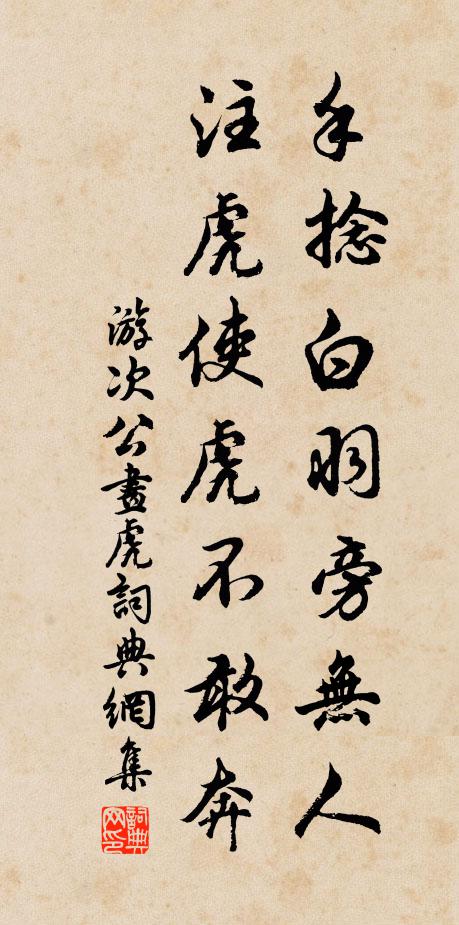 手捻白羽旁無人
注虎使虎不敢奔
游次公畫虎詞典網集
詞典網印